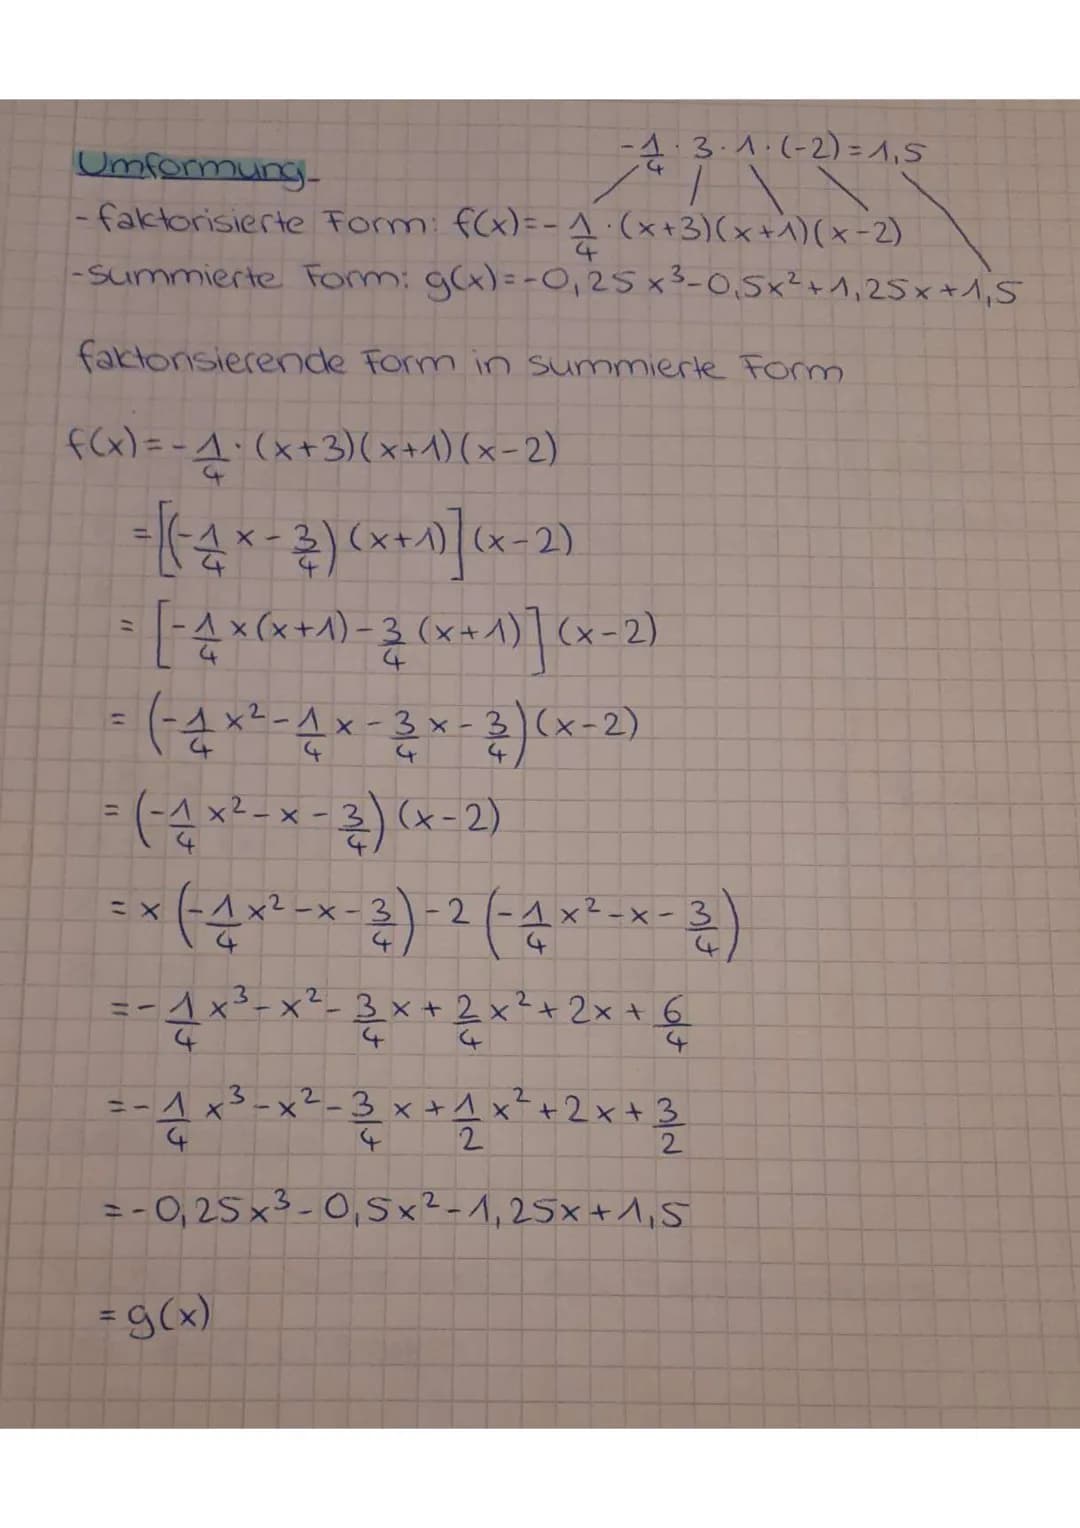 -1/4 · 3 · 1 · (-2) = 1,5
Umformung
- faktorisierte Form: f(x) = - 1/4 · (x+3)(x+1)(x-2)
- summierte Form: g(x) = -0,25x³-0,5x²+1,25x+1,5
faktorisierende Form in summierte Form
f(x) = - 1/4 · (x+3)(x+1)(x-2)
= [(-1/4 x - 3/4) (x+1)] (x-2)
= [-1/4 x(x+1) - 3/4 (x+1)] (x-2)
= (-1/4 x² - 1/4 x - 3/4 x - 3/4)(x-2)
= (-1/4 x² - x - 3/4) (x-2)
= x (-1/4 x² - x - 3/4) - 2 (-1/4 x² - x - 3/4)
= - 1/4 x³ - x² - 3/4 x + 2/4 x² + 2x + 6/4
= - 1/4 x³ - x² - 3/4 x + 1/2 x² + 2x + 3/2
= -0,25x³ - 0,5x² - 1,25x + 1,5
= g(x)